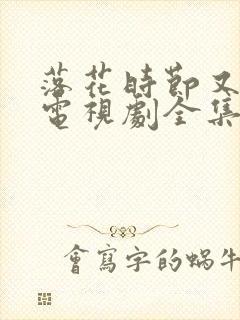 落花時節又
電視劇全集
會寫字的蝸牛